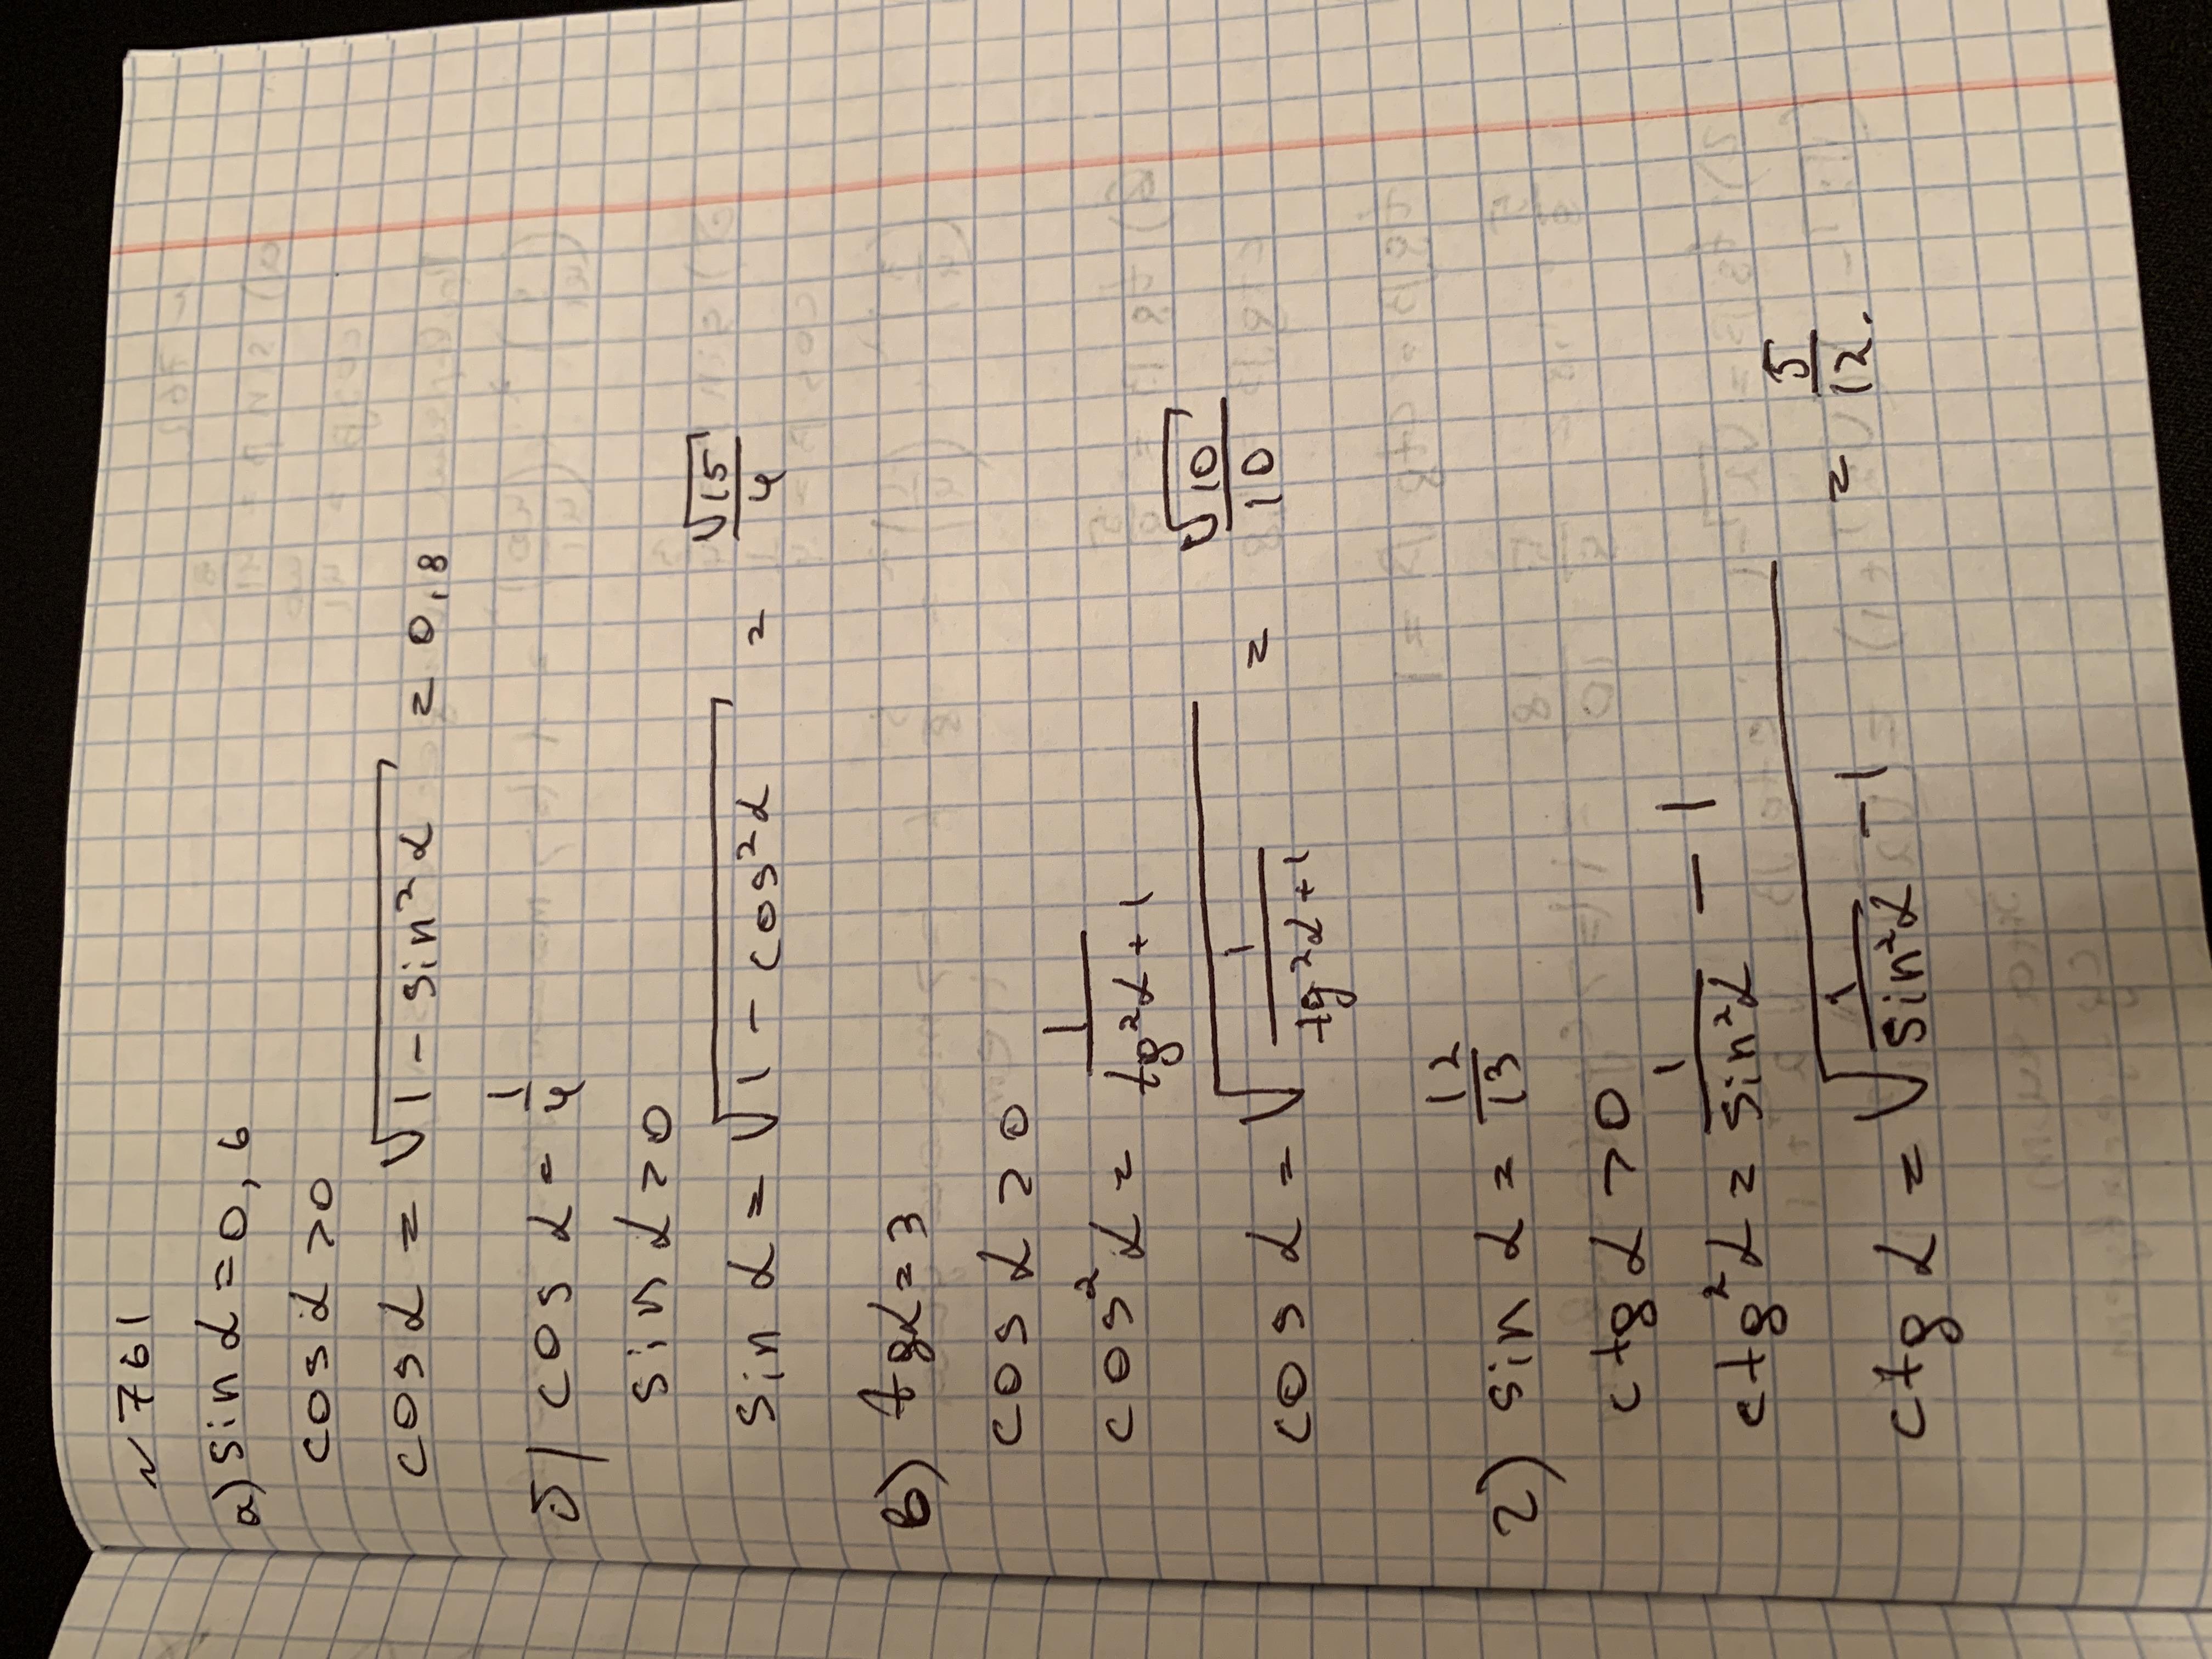 № 761
а) sin α = 0,6
cos α > 0
cos α = √(1 - sin²α) = 0,8
б) cos α = 1/4
sin α > 0
sin α = √(1 - cos²α) = √15/4
в) tg α = 3
cos α > 0
cos²α = 1/(tg²α + 1)
cos α = √(1/(tg²α + 1)) = √10/10
г) sin α = 12/13
ctg α > 0
ctg²α = 1/sin²α - 1
ctg α = √(1/sin²α - 1) = 5/12.